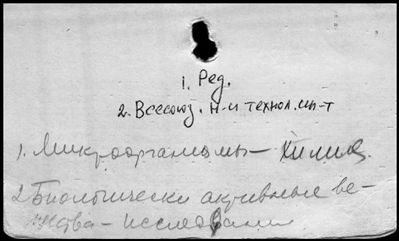 1. Ред.
2. Всесоюз. н-и технол. ин-т
1. Микроорганизмы - Химия.
2. Биологически активные ве-
щества - исследования